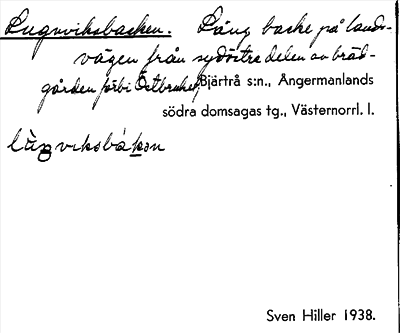 Lugnviksbacken. Lång backe på lands-
vägen från sydöstra delen av bräd-
gården förbi Östbruket, Bjärtrå s:n., Ångermanlands
södra domsagas tg., Västernorrl. l.
Sven Hiller 1938.